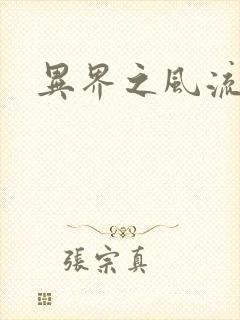 異界之風流
張宗真